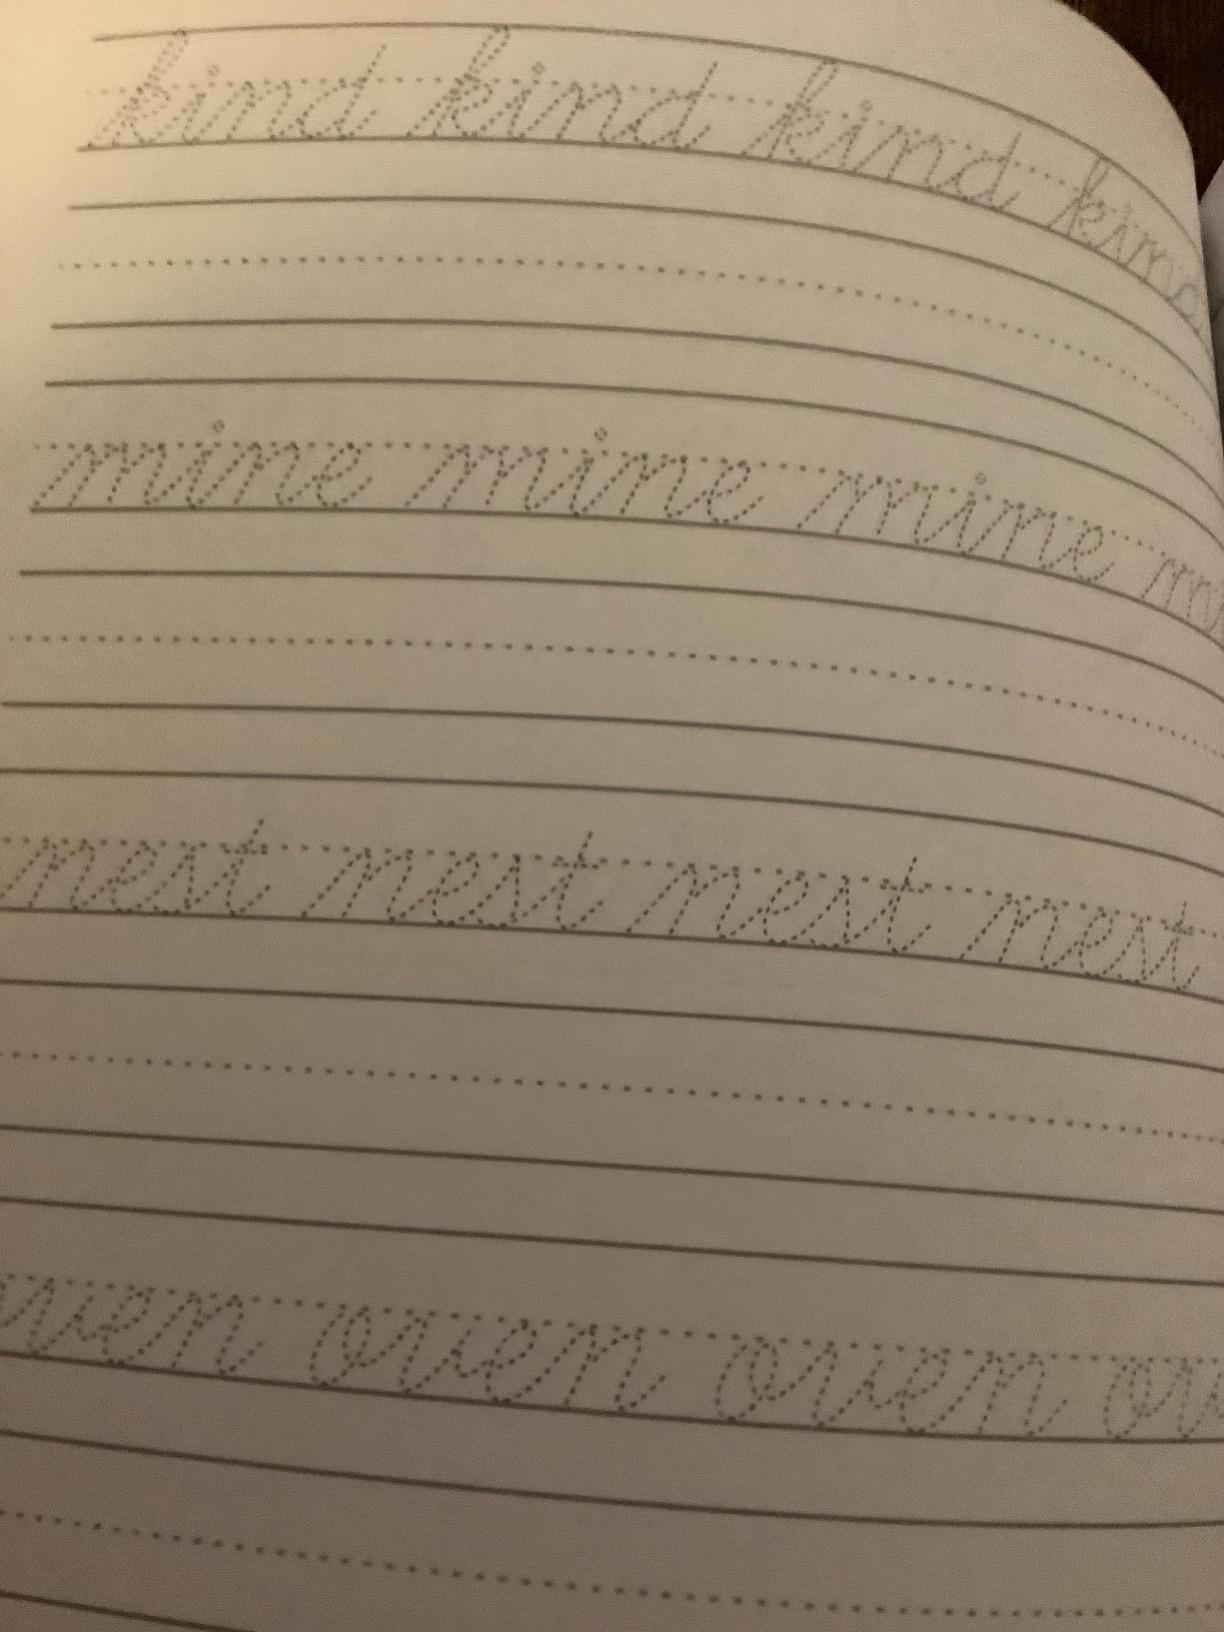 kind kind kind kind
mine mine mine
nest nest nest nest
oven oven